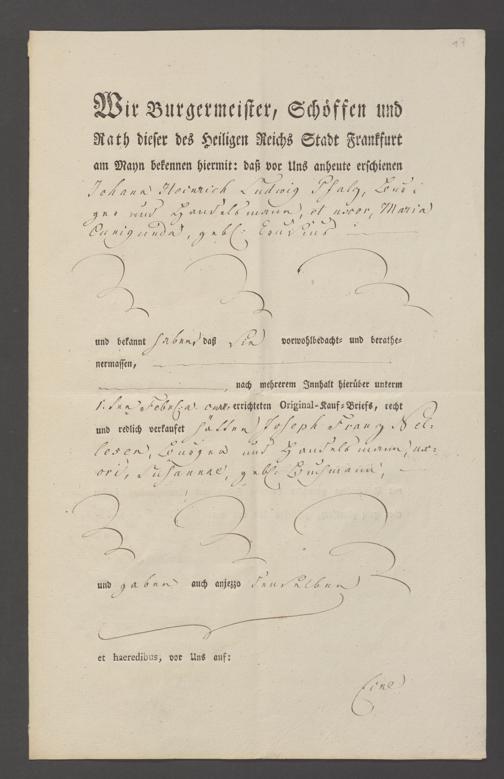 17
Wir Burgermeister, Schöffen und
Rath dieser des Heiligen Reichs Stadt Frankfurt
am Mayn bekennen hiermit: daß vor Uns anheute erschienen
Johann Heinrich Ludwig Pfalz, Bur-
ger und Handelsmann, et uxor, Maria
Cunigunda, gebl:
und bekannt haben, daß Sie vorwohlbedacht- und berathe-
nermassen,
, nach mehrerem Innhalt hierüber unterm
1. ten Febr: a. curr. errichteten Original-Kauf-Briefs, recht
und redlich verkauft hätten Joseph Franz
Burger und Handelsmann, ux-
ori, Susannae, gebl: Buchmann,
und gaben auch anjezzo denselben
et haeredibus, vor Uns auf:
Eine